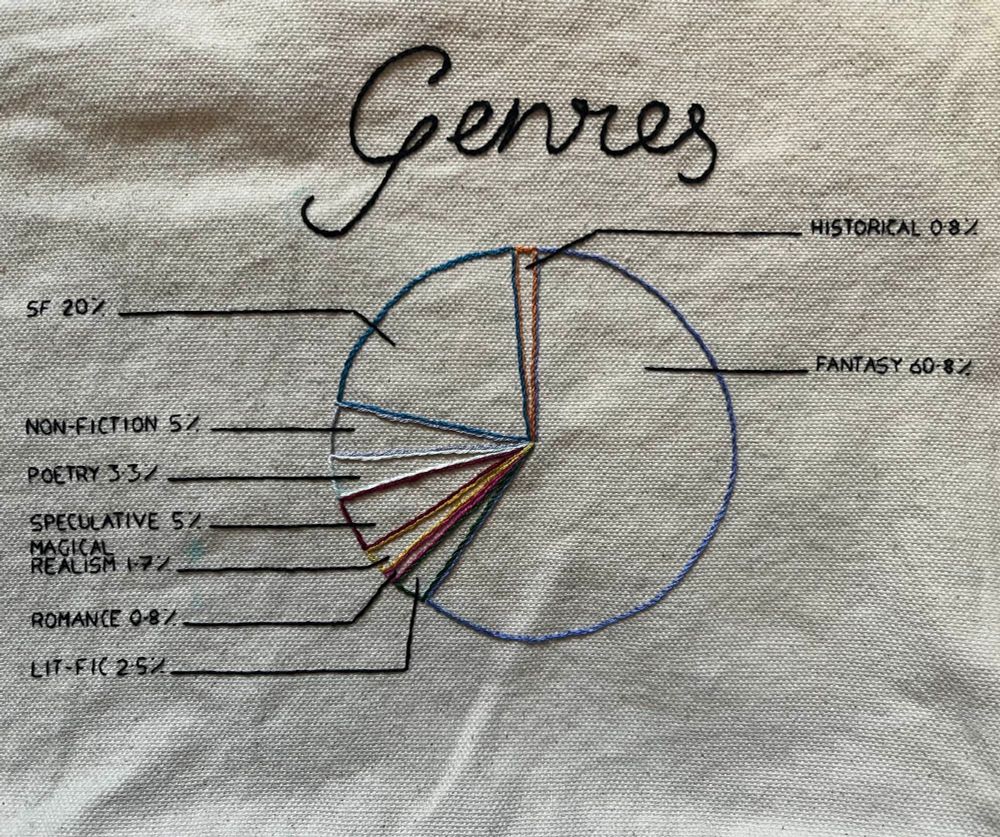 Genres
HISTORICAL 0.8%
SF 20%
FANTASY 60.8%
NON-FICTION 5%
POETRY 3.3%
SPECULATIVE 5%
MAGICAL
REALISM 1.7%
ROMANCE 0.8%
LIT-FIC 2.5%